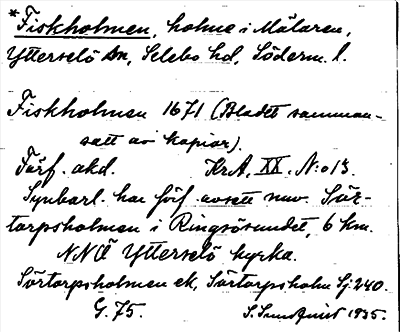 *Fiskholmen, holme i Mälaren,
Ytterselö sn, Selebo hd, Söderm. l.
Fiskholmen 1671 (Bladet samman-
satt av kopior).
Förf. okd. KrA, XX. N:o 13.
Synbarl. har förf. avsett nuv. Sör-
torpsholmen i Ringsösundet, 6 km.
NNÖ Ytterselö kyrka.
Sörtorpsholmen ek, Sörtorpsholm Sj 240.
G. 75. S. 1935.